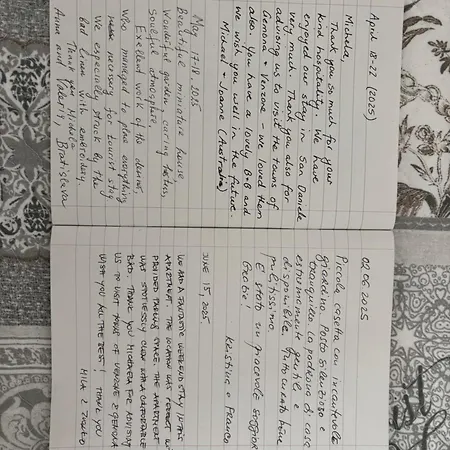 April 18-22 (2025)
Michela,
Thank you so much for your
kind hospitality. We have
enjoyed our stay in San Daniele
very much. Thank you also for
advising us to visit the towns of
Gemona + Venzone - we loved them
also. You have a lovely B+B and
we wish you well in the future.
Michael + Joanne (Australia)
May 17-18. 2025
Beautiful miniature house
Wonderful garden, caring
Soulful atmosphere.
Exellent work of the owner,
who managed to place everything
necessary for tourist stay
We especially stuck by the
bad linen with embroidery.
Thank you Michela
Anna and Bratislava
02 06 2025
Piccola casetta con incantevole
giardino. Posto silenzioso e
tranquillo. La padrona di casa
estremamente gentile e
disponibile. Tutto curato bene
pulitissimo.
È stato un piacevole soggiorno
Grazie!
Kristine e Franco
JUNE 15, 2025
WE HAD A FANTASTIC WEEKEND STAY IN THIS
APARTMENT. THE LOCATION WAS PERFECT W
PROVIDED PARKING SPACE. THE APARTMENT
WAS SPOTLESSLY CLEAN WITH A COMFORTABLE
BED. THANK YOU MICHAELA FOR ADVISING
US TO VISIT TOWNS OF VENZONE & GEMONA
WISH YOU ALL THE BEST! THANK YOU
MILA &